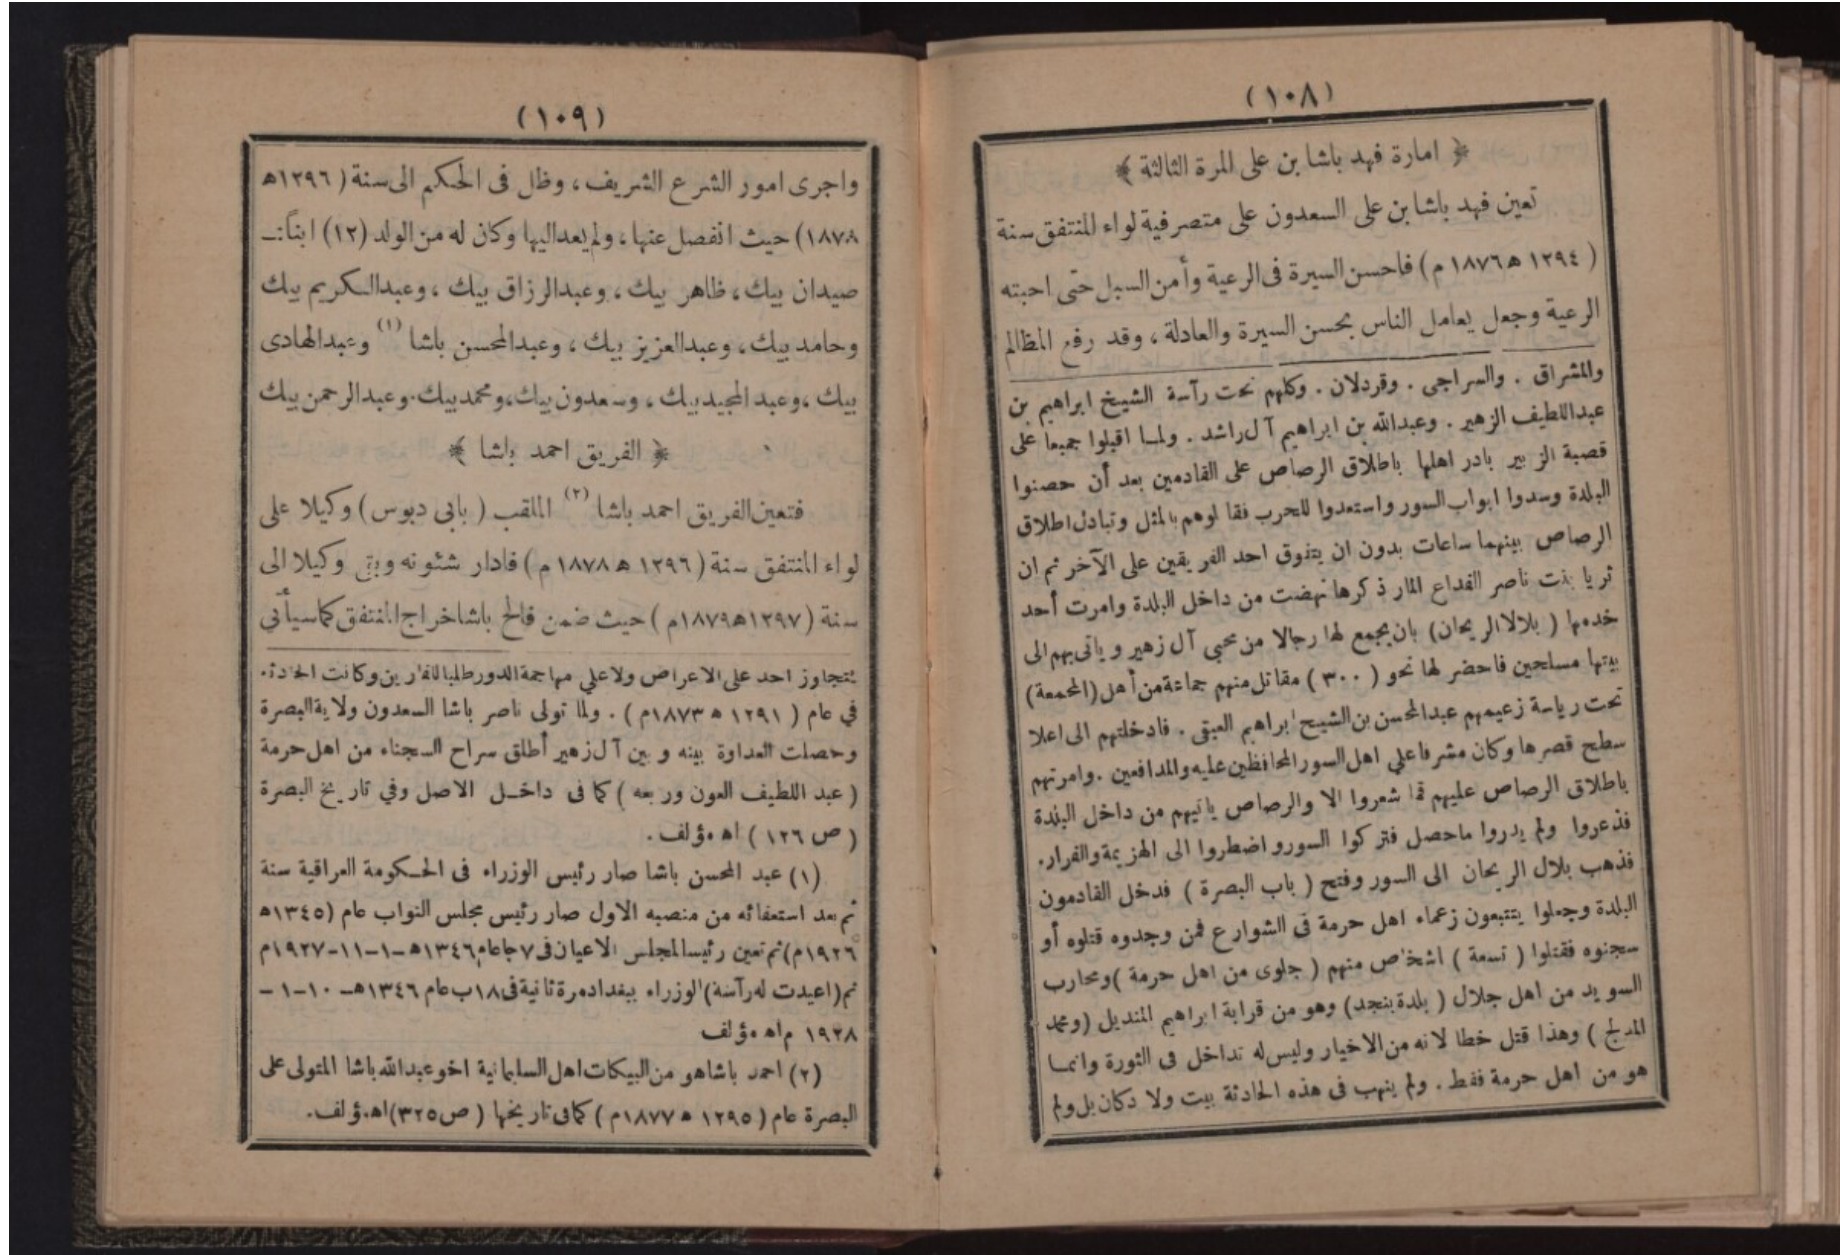 (١٠٨)
﴿ امارة فهد باشا بن على للمرة الثالثة ﴾
تعين فهد باشا بن على السعدون على متصرفية لواء المنتفق سنة
( ١٢٩٤ ه ١٨٧٦ م ) فاحسن السيرة فى الرعية وأمن السبل حتى احبته
الرعية وجعل يعامل الناس بحسن السيرة والعادلة ، وقد رفع المظالم
والمشراق . والسراجى . وقردلان . وكلهم تحت رآسة الشيخ ابراهيم بن
عبداللطيف الزهير . وعبدالله بن ابراهيم آل راشد . ولمـا اقبلوا جميعا على
قصبة الزبير بادر اهلها باطلاق الرصاص على القادمين بعد أن حصنوا
البلدة وسدوا ابواب السور واستعدوا للحرب فقا لوهم بالمثل وتبادل اطلاق
الرصاص بينهما ساعات بدون ان يتفوق احد الفريقين على الآخر ثم ان
ثريا بنت ناصر الفداع المار ذكرها نهضت من داخل البلدة وامرت أحد
خدمها ( بلالا الريحان ) بان يجمع لها رجالا من محبى آل زهير و ياتى بهم الى
بيتها مسلحين فاحضر لها نحو ( ٣٠٠ ) مقاتل منهم جماعة من أهل (المجمعة)
تحت رياسة زعيمهم عبدالمحسن بن الشيخ ابراهيم العبقى . فادخلتهم الى اعلا
سطح قصرها وكان مشرفا على اهل السور المحافظين عليه والمدافعين . وامرتهم
باطلاق الرصاص عليهم فما شعروا الا والرصاص ياتيهم من داخل البلدة
فذعروا ولم يدروا ماحصل فتركوا السور واضطروا الى الهزيمة والفرار.
فذهب بلال الريحان الى السور وفتح ( باب البصرة ) فدخل القادمون
البلدة وجعلوا يتتبعون زعماء اهل حرمة فى الشوارع فمن وجدوه قتلوه أو
سجنوه فقتلوا ( تسعة ) اشخاص منهم ( جلوى من اهل حرمة ) ومحارب
السويد من اهل جلال ( بلدة بنجد ) وهو من قرابة ابراهيم المنديل (ومحمد
المدلج ) وهذا قتل خطا لانه من الاخيار وليس له تداخل فى الثورة وانمـا
هو من اهل حرمة فقط . ولم ينهب فى هذه الحادثة بيت ولا دكان بل ولم
(١٠٩)
واجرى امور الشرع الشريف ، وظل فى الحكم الى سنة ( ١٢٩٦ه
١٨٧٨) حيث انفصل عنها ، ولم يعد اليها وكان له من الولد (١٢) ابناً :ـ
صيدان بيك ، ظاهر بيك ، وعبدالرزاق بيك ، وعبدالكريم بيك
وحامد بيك ، وعبدالعزيز بيك ، وعبدالمحسن باشا (١) وعبدالهادى
بيك ، وعبدالمجيد بيك ، وسعدون بيك، ومحمد بيك. وعبدالرحمن بيك
﴿ الفريق احمد باشا ﴾
فتعين الفريق احمد باشا (٢) الملقب ( بابى دبوس ) وكيلا على
لواء المنتفق سنة ( ١٢٩٦ ه ١٨٧٨ م ) فادار شئونه وبقى وكيلا الى
سنة ( ١٢٩٧ه ١٨٧٩م ) حيث ضمن فالح باشا خراج المنتفق كما سيأتى
يتجاوز احد على الاعراض ولا على مهاجمة الدور طلبا للفارين وكانت الحادثة.
في عام ( ١٢٩١ ه ١٨٧٣م ) . ولما تولى ناصر باشا السعدون ولاية البصرة
وحصلت العداوة بينه و بين آل زهير أطلق سراح السجناء من اهل حرمة
( عبد اللطيف العون وربعه ) كما فى داخـل الاصل وفي تاريخ البصرة
( ص ١٢٦ ) اه مؤلف .
(١) عبد المحسن باشا صار رئيس الوزراء فى الحـكومة العراقية سنة
ثم بعد استعفائه من منصبه الاول صار رئيس مجلس النواب عام (١٣٤٥ه
١٩٢٦م) ثم تعين رئيسا لمجلس الاعيان فى ٧ جا عام ١٣٤٦ه-١-١١-١٩٢٧م
ثم (اعيدت له رآسة) الوزراء ببغداد مرة ثانية فى ١٨ ب عام ١٣٤٦ه- ١٠-١-
١٩٢٨ م اه مؤلف
(٢) احمد باشا هو من البيكات اهل السليمانية اخو عبدالله باشا المتولى على
البصرة عام ( ١٢٩٥ ه ١٨٧٧م ) كما فى تاريخها ( ص ٣٢٥) اه. ؤلف .